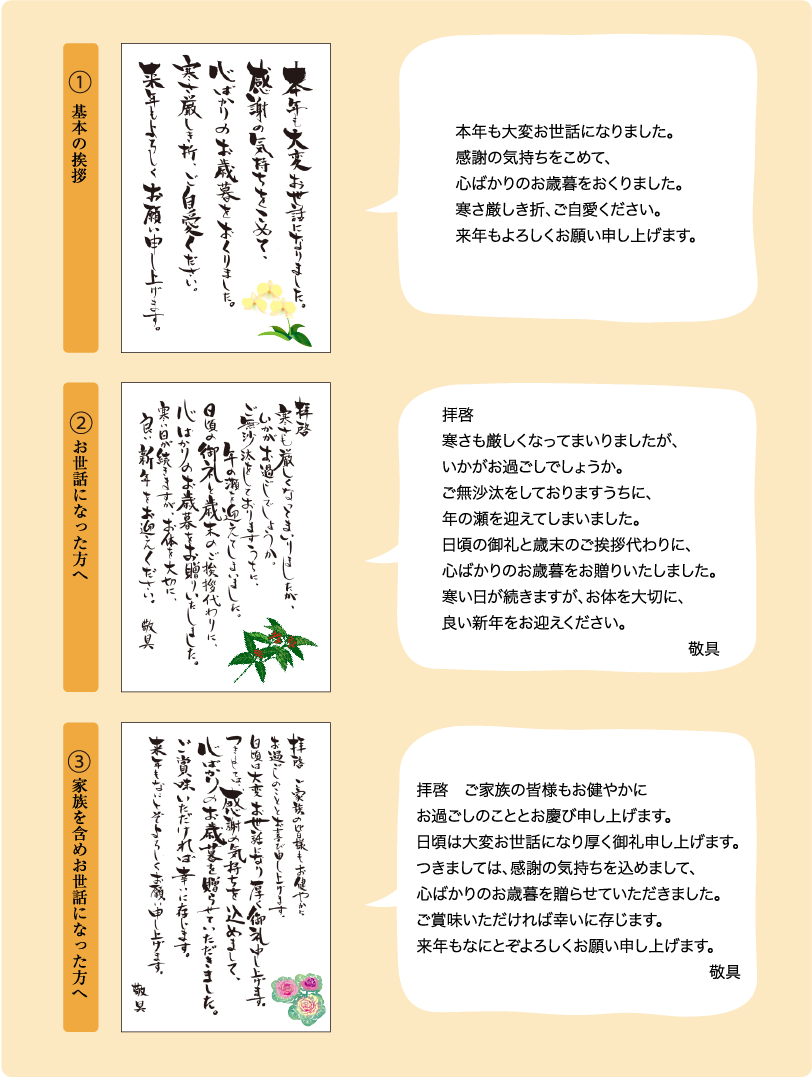 ① 基本の挨拶
本年も大変お世話になりました。
感謝の気持ちをこめて、
心ばかりのお歳暮をおくりました。
寒さ厳しき折、ご自愛ください。
来年もよろしくお願い申し上げます。
本年も大変お世話になりました。
感謝の気持ちをこめて、
心ばかりのお歳暮をおくりました。
寒さ厳しき折、ご自愛ください。
来年もよろしくお願い申し上げます。
② お世話になった方へ
拝啓
寒さも厳しくなってまいりましたが、
いかがお過ごしでしょうか。
ご無沙汰をしておりますうちに、
年の瀬を迎えてしまいました。
日頃の御礼と歳末のご挨拶代わりに、
心ばかりのお歳暮をお贈りいたしました。
寒い日が続きますが、お体を大切に、
良い新年をお迎えください。
敬具
拝啓
寒さも厳しくなってまいりましたが、
いかがお過ごしでしょうか。
ご無沙汰をしておりますうちに、
年の瀬を迎えてしまいました。
日頃の御礼と歳末のご挨拶代わりに、
心ばかりのお歳暮をお贈りいたしました。
寒い日が続きますが、お体を大切に、
良い新年をお迎えください。
敬具
③ 家族を含めお世話になった方へ
拝啓 ご家族の皆様もお健やかに
お過ごしのこととお喜び申し上げます。
日頃は大変お世話になり厚く御礼申し上げます。
つきましては、感謝の気持ちを込めまして、
心ばかりのお歳暮を贈らせていただきました。
ご賞味いただければ幸いに存じます。
来年もなにとぞよろしくお願い申し上げます。
敬具
拝啓　ご家族の皆様もお健やかに
お過ごしのこととお慶び申し上げます。
日頃は大変お世話になり厚く御礼申し上げます。
つきましては、感謝の気持ちを込めまして、
心ばかりのお歳暮を贈らせていただきました。
ご賞味いただければ幸いに存じます。
来年もなにとぞよろしくお願い申し上げます。
敬具